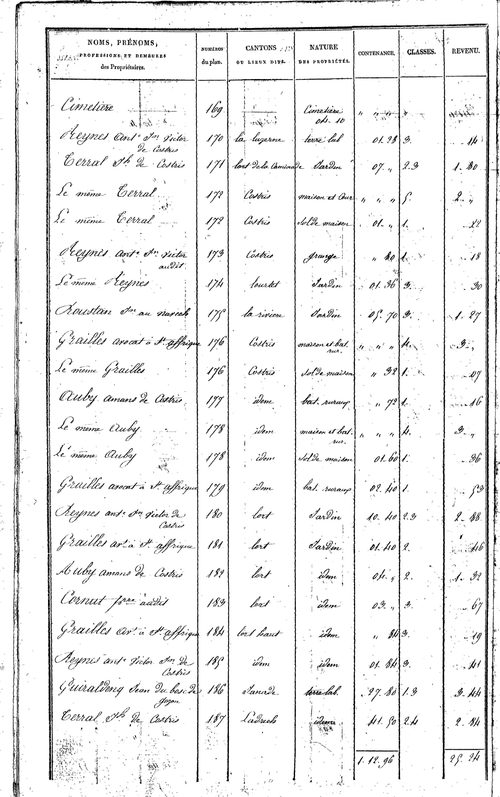 NOMS, PRÉNOMS, PROFESSIONS, ET DEMEURES des Propriétaires. NUMÉROS du plan. CANTONS OU LIEUX DITS. NATURE DES PROPRIÉTÉS. CONTENANCE. CLASSES. REVENU.
Cimetière 169 Cimetière
Reynes ant. Jn victor 170 la luzerne terre lab 01.28 3. 14
de Costris
Terral Jh de Costris 171 lort de la Caminade Jardin 07 " 2.3 1. 80
Le même Terral 172 Costris maison et Cour " " " 5. 2. "
Le même Terral 172 Costris sol de maison 01. " 1. 22
Reynes ant. Jn victor 173 Costris grange " 80 1. 18
audit
Le même Reynes 174 Jardin 01.36 3. 30
Roustan au 175 la riviere Jardin 05.70 3. 1.27
Grailles avocat à St. affrique 176 Costris maison et bat. rur. " " " 4. 3. "
Le même Grailles 176 Costris sol de maison " 32 1. 07
Auby amans de Costris 177 idem bat. raraux " 72 1. 16
Le même Auby 178 idem maison et bat. rur. " " " 4. 3. "
Le même Auby 178 idem sol de maison 01.60 1. 36
Grailles avocat à St. affrique 179 idem bat. ruraux 02.40 1. 53
Reynes ant. Jn victor de 180 lort Jardin 10.40 2.3 2.88
Costris
Grailles av. à St. affrique 181 lort Jardin 01.40 2. 46
Auby amans de Costris 182 lort idem 04. " 2. 1.32
Cornut audit 183 lort idem 03. " 3. 67
Grailles av. à St affrique 184 lort haut idem " 84 3. 19
Reynes ant. victor Jn de 185 idem idem 01.84 3. 41
Costris
Guiraldenq Jean du bosc de 186 terre lab. 27.80 1.3 3.44
Terral Jh de Costris 187 idem 41.50 2.4 2.84
1.12.96 25.24